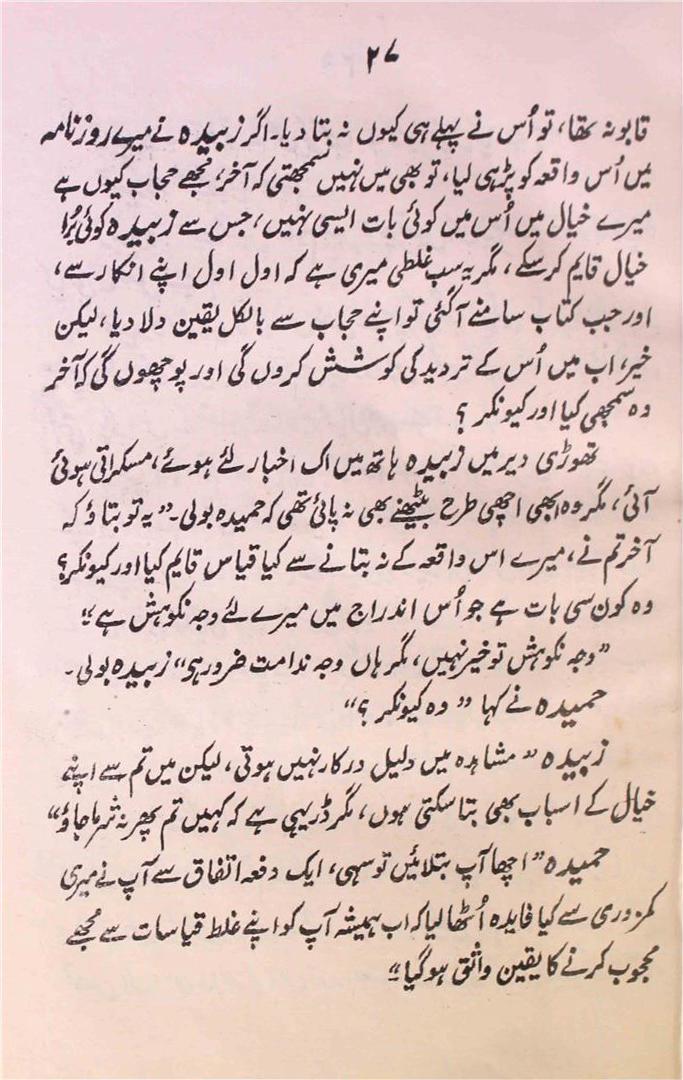 ۲۷
قابو نہ تھا، تو اُس نے پہلے ہی کیوں نہ بتا دیا۔ اگر زبیدہ نے میرے روزنامہ
میں اُس واقعہ کو پڑھ ہی لیا، تو بھی میں نہیں سمجھتی کہ آخر، مجھے حجاب کیوں ہے
میرے خیال میں اُس میں کوئی بات ایسی نہیں، جس سے زبیدہ کوئی بُرا
خیال قایم کرسکے، مگر یہ سب غلطی میری ہے کہ اول اول اپنے انکار سے،
اور جب کتاب سامنے آگئی تو اپنے حجاب سے بالکل یقین دلا دیا، لیکن
خیر، اب میں اُس کے تردید کی کوشش کروں گی اور پوچھوں گی کہ آخر
وہ سمجھی کیا اور کیونکر ؟
تھوڑی دیر میں زبیدہ ہاتھ میں اک اخبار لئے ہوئے، مسکراتی ہوئی
آئی، مگر وہ ابھی اچھی طرح بیٹھنے بھی نہ پائی تھی کہ حمیدہ بولی۔ ”یہ تو بتاؤ کہ
آخر تم نے، میرے اس واقعہ کے نہ بتانے سے کیا قیاس قایم کیا اور کیونکر؟
وہ کون سی بات ہے جو اُس اندراج میں میرے لئے وجہ نکوہش ہے“
”وجہ نکوہش تو خیر نہیں، مگر ہاں وجہ ندامت ضرور ہی“ زبیدہ بولی۔
حمیدہ نے کہا ”وہ کیونکر ؟“
زبیدہ ”مشاہدہ میں دلیل درکار نہیں ہوتی، لیکن میں تم سے اپنے
خیال کے اسباب بھی بتا سکتی ہوں، مگر ڈر یہی ہے کہ کہیں تم پھر نہ شرما جاؤ“
حمیدہ ”اچھا آپ بتلائیں تو سہی، ایک دفعہ اتفاق سے آپ نے میری
کمزوری سے کیا فایدہ اُٹھا لیا کہ اب ہمیشہ آپ کو اپنے غلط قیاسات سے مجھے
محجوب کرنے کا یقین واثق ہوگیا“